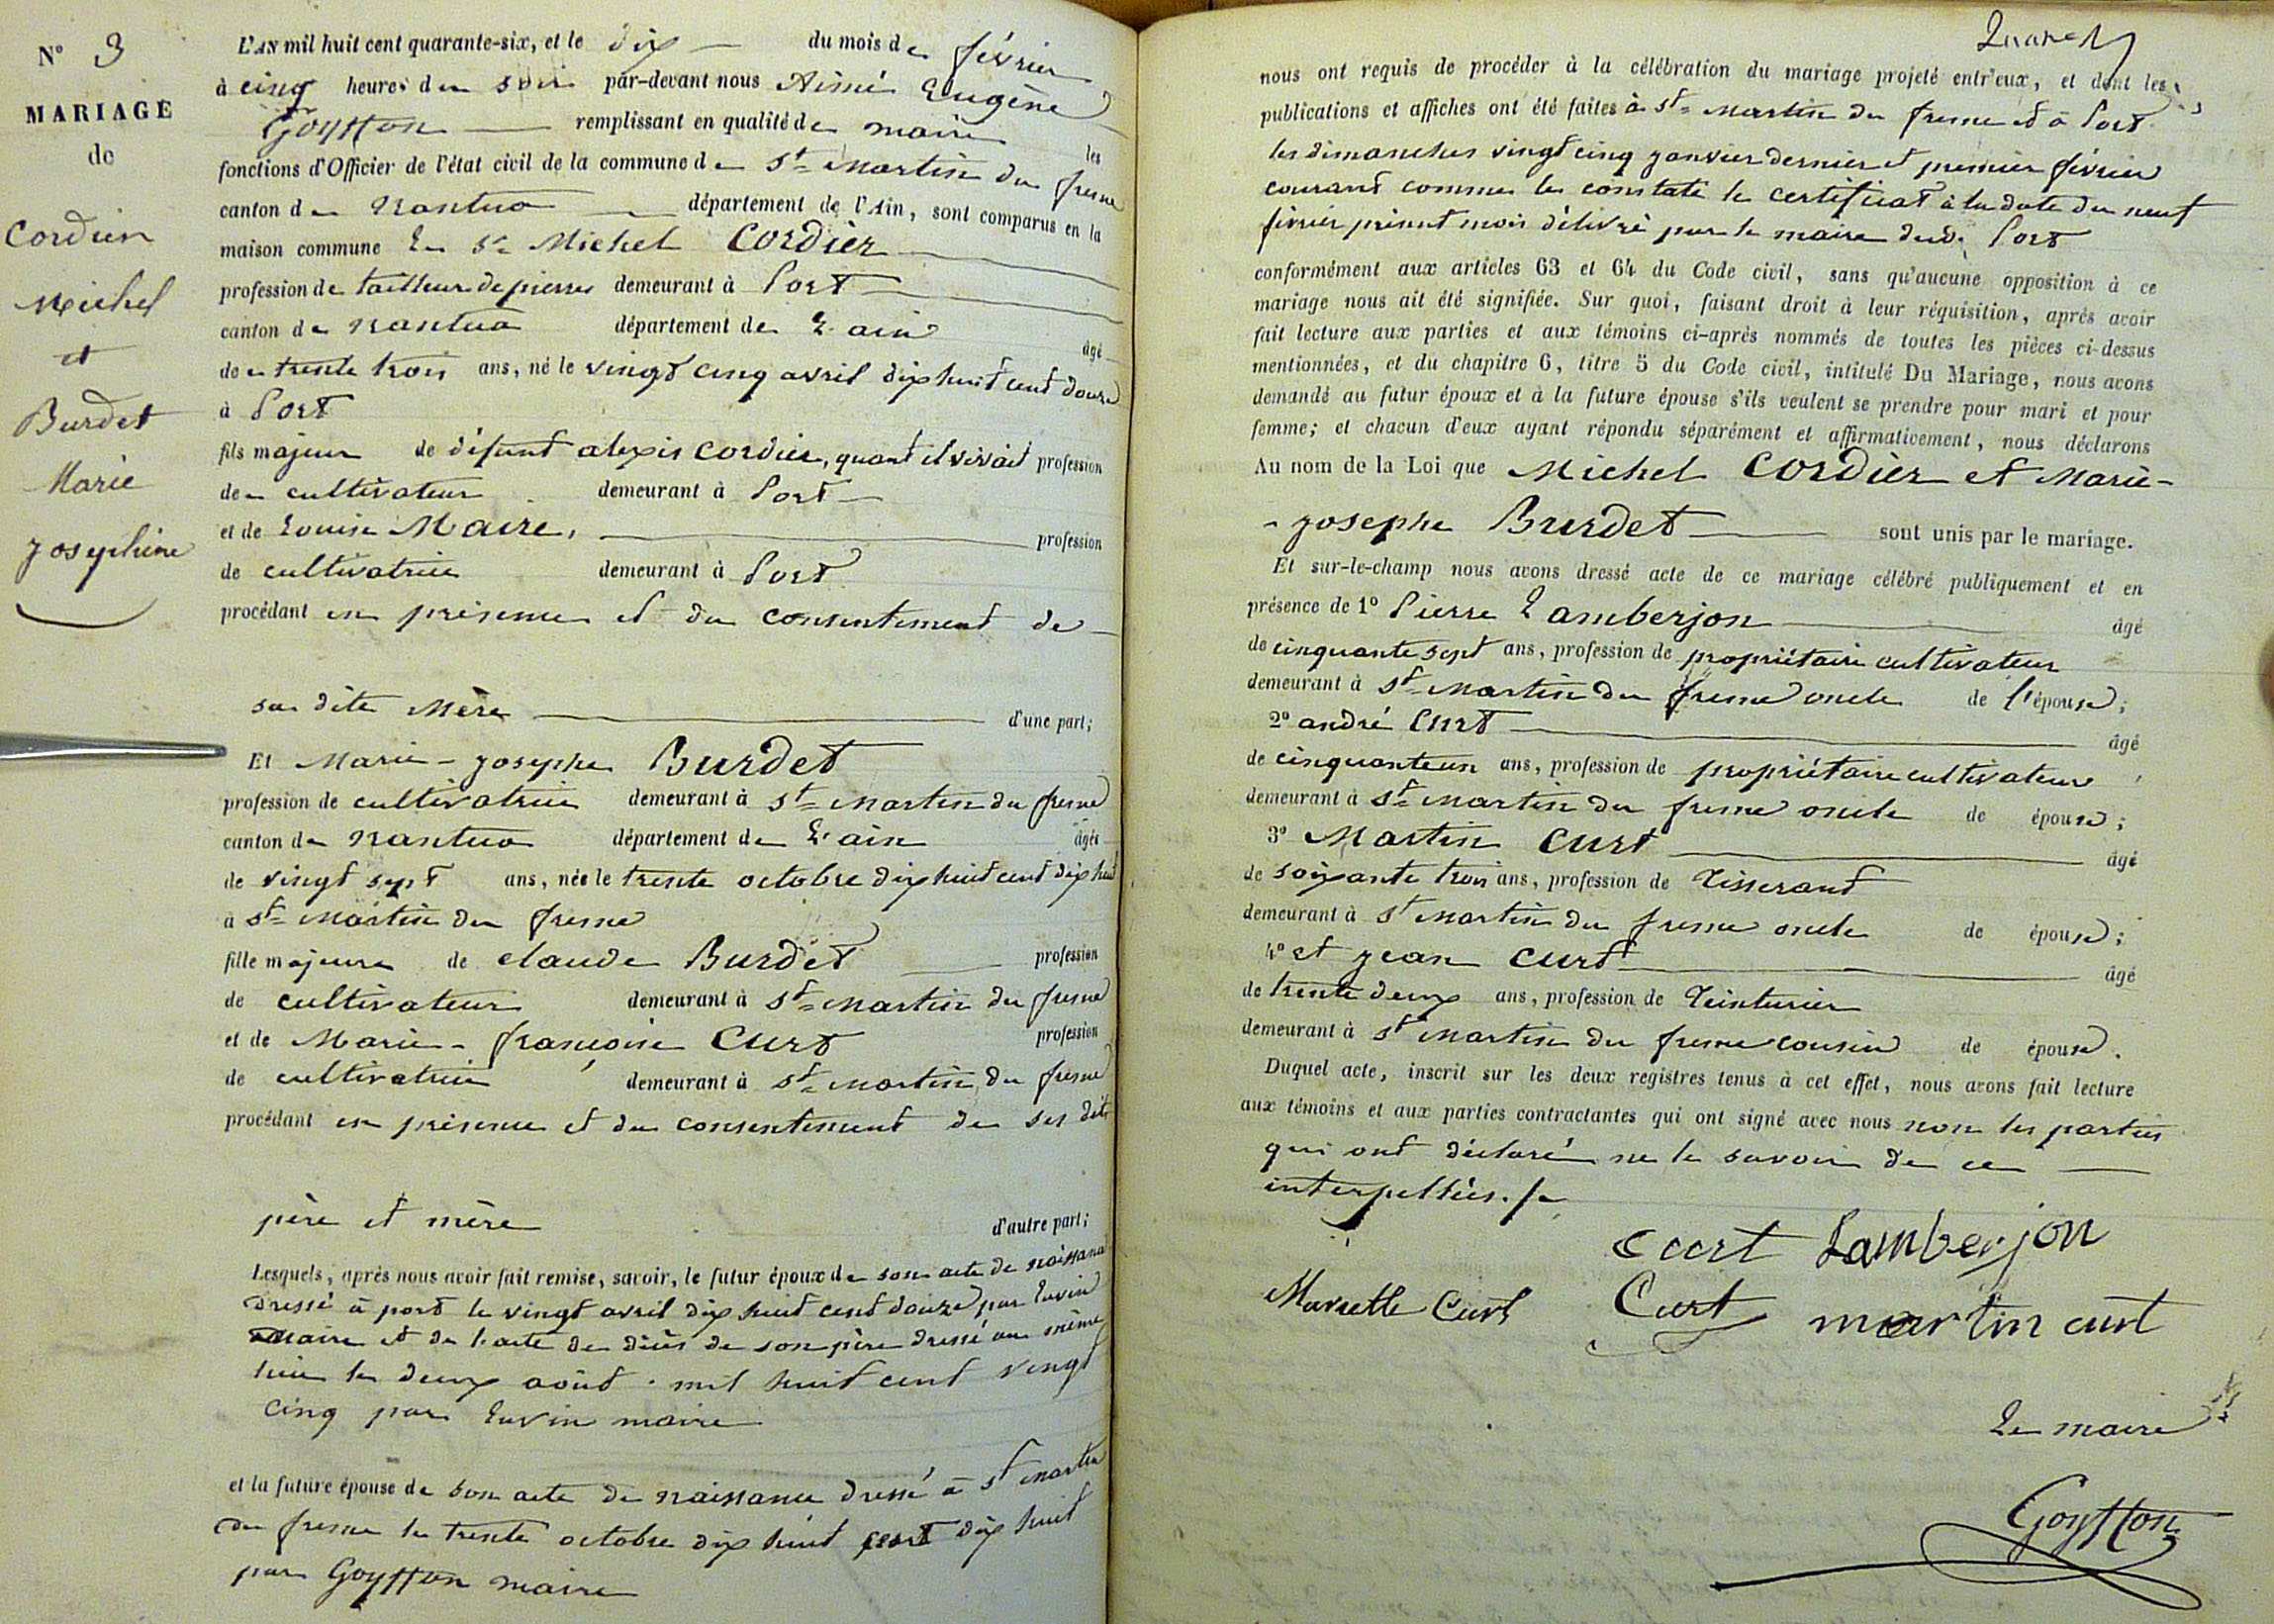 N° 3
MARIAGE
de
Cordier
Michel
et
Burdet
Marie
Josephine
L'AN mil huit cent quarante-six, et le dix du mois de février
à cinq heures du soir par-devant nous Aimé Eugène
Goyffon remplissant en qualité de maire les
fonctions d'Officier de l'état civil de la commune de St Martin du fresne
canton de Nantua département de l'Ain, sont comparus en la
maison commune Le Sr Michel Cordier
profession de tailleur de pierres demeurant à Port
canton de Nantua département de L'ain âgé
de trente trois ans, né le vingt cinq avril dix huit cent douze
à Port
fils majeur de défunt alexis Cordier, quant il vivait profession
de cultivateur demeurant à Port
et de Louise Maire, profession
de cultivatrice demeurant à Port
procédant en présence et du consentement de
sa dite Mère d'une part;
Et Marie-josephe Burdet
profession de cultivatrice demeurant à St Martin du fresne
canton de Nantua département de L'ain âgée
de vingt sept ans, née le trente octobre dix huit cent dix huit
à St Martin du fresne
fille majeure de claude Burdet profession
de cultivateur demeurant à St Martin du fresne
et de Marie-françoise Curt profession
de cultivatrice demeurant à St Martin du fresne
procédant en présence et du consentement de ses dits
père et mère d'autre part;
Lesquels, après nous avoir fait remise, savoir, le futur époux de son acte de naissance
dressé à port le vingt avril dix huit cent douze par Luvin
Maire et de l'acte de décès de son père dressé au même
lieu le deux août mil huit cent vingt
cinq par Luvin maire
et la future épouse de son acte de naissance dressé à St Martin
du fresne le trente octobre dix huit cent dix huit
par Goyffon maire
nous ont requis de procéder à la célébration du mariage projeté entr'eux, et dont les
publications et affiches ont été faites à St Martin du fresne et à Port
les dimanches vingt cinq janvier dernier et premier février
courant comme le constate le certificat à la date du neuf
février présent mois délivré par le maire dud. Port
conformément aux articles 63 et 64 du Code civil, sans qu'aucune opposition à ce
mariage nous ait été signifiée. Sur quoi, faisant droit à leur réquisition, après avoir
fait lecture aux parties et aux témoins ci-après nommés de toutes les pièces ci-dessus
mentionnées, et du chapitre 6, titre 5 du Code civil, intitulé Du Mariage, nous avons
demandé au futur époux et à la future épouse s'ils veulent se prendre pour mari et pour
femme; et chacun d'eux ayant répondu séparément et affirmativement, nous déclarons
Au nom de la Loi que Michel Cordier et Marie-
-josephe Burdet sont unis par le mariage.
Et sur-le-champ nous avons dressé acte de ce mariage célébré publiquement et en
présence de 1° Pierre Lamberjon âgé
de cinquante sept ans, profession de propriétaire cultivateur
demeurant à St Martin du fresne oncle de l'épouse;
2° andré Curt âgé
de cinquante un ans, profession de propriétaire cultivateur
demeurant à St Martin du fresne oncle de épouse;
3° Martin Curt âgé
de soixante trois ans, profession de Tisserand
demeurant à St Martin du fresne oncle de épouse;
4° et jean Curt âgé
de trente deux ans, profession de Teinturier
demeurant à St Martin du fresne cousin de épouse.
Duquel acte, inscrit sur les deux registres tenus à cet effet, nous avons fait lecture
aux témoins et aux parties contractantes qui ont signé avec nous non les parties
qui ont déclaré ne le savoir de ce
interpellées.
Curt Lamberjon
Curt Curt martin curt
Le maire
Goyffon